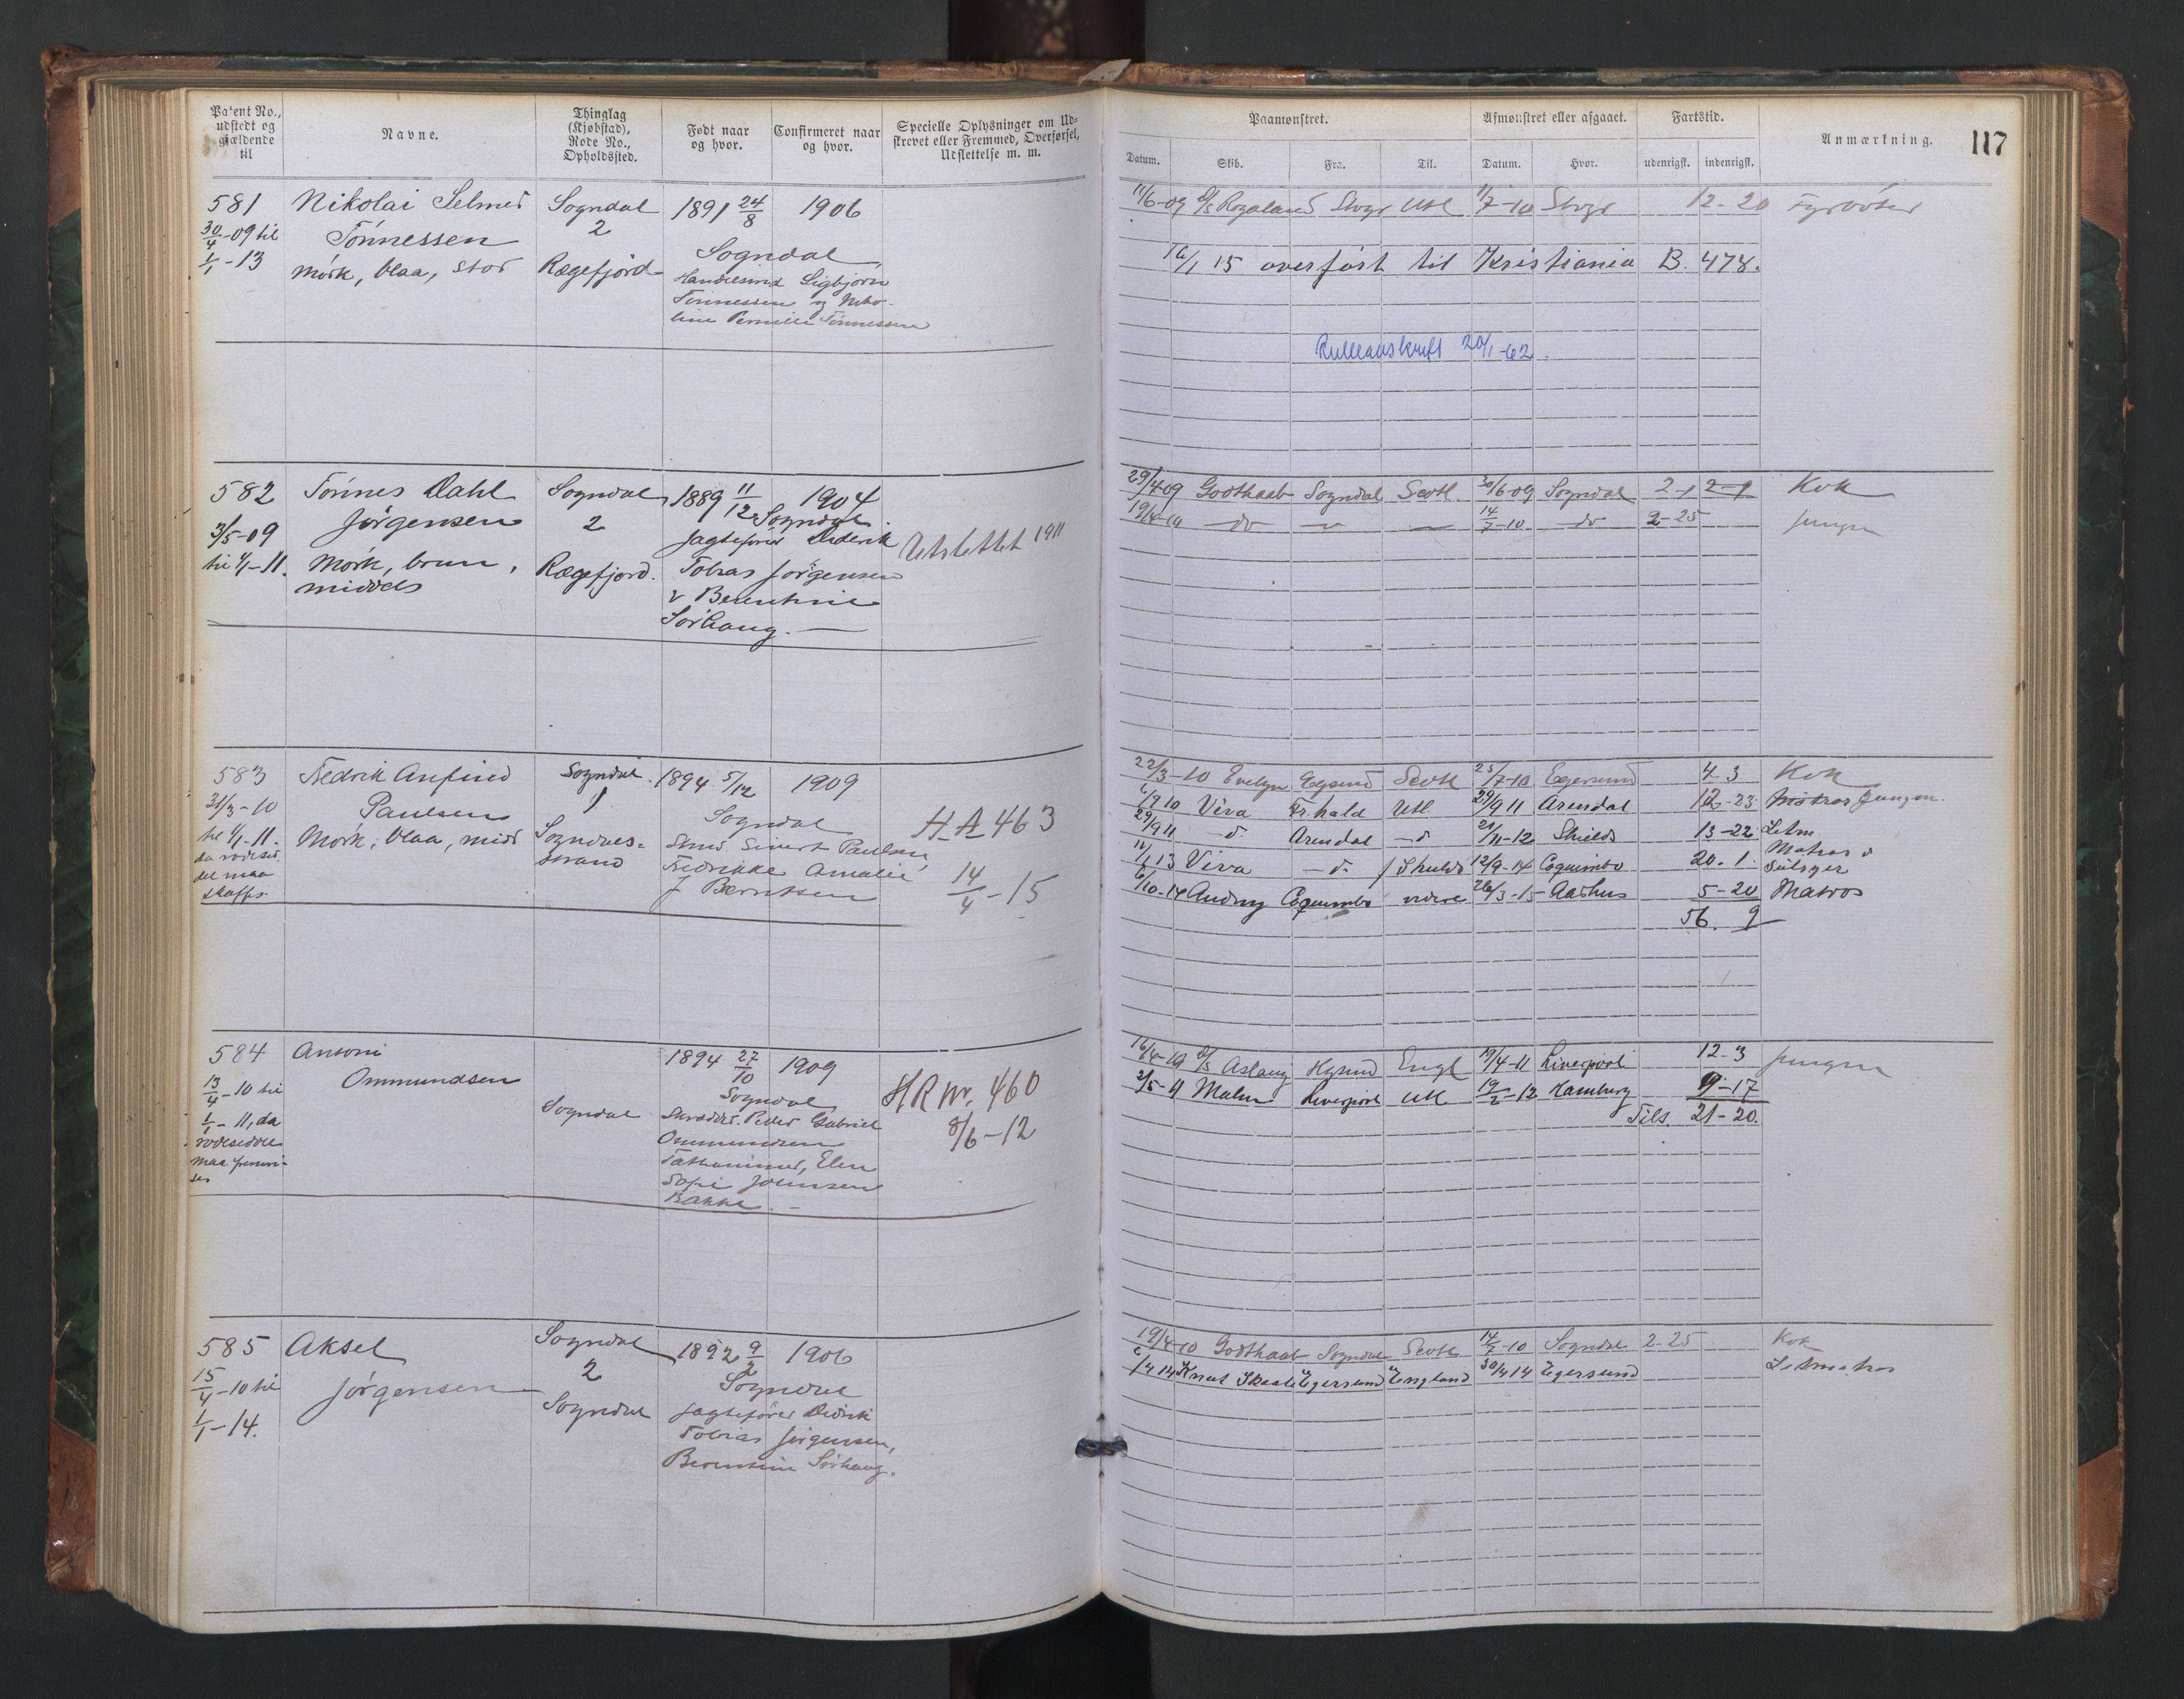 Patent No.,
udstedt og
gjældende
til
Navne.
Thinglag
(Kjøbstad),
Rode No.,
Opholdssted.
Født naar
og hvor.
Confirmeret naar
og hvor.
Specielle Oplysninger om Ud-
skrevet eller Fremmed, Overførsel,
Udslettelse m. m.
Paamønstret.
Afmønstret eller afgaaet.
Fartstid.
Anmærkning.
117
Datum.
Skib.
Fra.
Til.
Datum.
Hvor.
udenrigsk.
indenrigsk.
581
30/4-09 til
1/1-13
Nikolai Selmer
Tönnessen
Mörk, blaa, stor
Sogndal
2
Rægefjord
1891 24/8
1906
Sogndal
Handelsmd Sigbjörn
Tönnessen og
Pernille Tönnessen
11/6-09 d/s Rogaland Stvgr Utl 11/7-10 Stvgr 12-20 Fyrböter
16/1 15 overfört til Kristiania B. 478.
Rulleavskrift 20/1-62.
582
3/5-09
til 1/1-11.
Tönnes Dahl
Jörgensen
Mörk, brun,
middels
Sogndal
2
Rægefjord.
1889 11/12
1904
Sogndal
Jagtefører Diderik
Tobias Jörgensen
Berentine
Sörhaug.
Utslettet 1911
29/4-09 Godthaab Sogndal Scotl. 30/6-09 Sogndal 2-1 2-1 Kok
19/4-10 do 14/7-10 do 2-25 Jungm
583
31/3-10
til 1/1-11.
da rodesed.
del maa
skaffes
Fredrik Anfind
Paulsen
Mörk, blaa, midd
Sogndal.
1
Sogndals-
strand
1894 5/12
1909
Sogndal
Skmd. Sivert Paulsen,
Fredrikke Amalie
f Berntsen
H A 463
14/4-15
22/3-10 Evelyn Egsund Scotl 25/7-10 Egersund 4-3 Kok
6/9 10 Viva Fr.hald Utl. 29/9 11 Arendal 12-23 Matros Jungm.
29/9 11 -d- Arendal -d 21/11-12 Shields 13-22 Letm
11/1 13 Viva -d- f Shields 12/9-14 Coquimbo 20. 1. Matros o
Seilsyer
6/10-14 Audny Coquimbo videre 26/3-15 Aarhus 5-20 Matros
56. 9
584
13/4-10 til
1/1-11, da
rodeseddel
maa
Antoni
Ommundsen
Sogndal
1894 27/10
1909
Sogndal
Skrædder. Peder Gabriel
Ommundsen
Elen
Sofie Johnsen
Bakke.
HR Nr. 460
8/6-12
16/4-10 d/s Aslaug Hgsund Engl 19/4-11 Liverpool 12-3 Jungm
2/5-11 Malm Liverpool Utl 19/2-12 Hamburg 9-17
Tils. 21-20.
585
15/4-10 til
1/1-14.
Aksel
Jörgensen
Sogndal
2
Sogndal
1892 9/2
1906
Sogndal
Jagtefører Didrik
Tobias Jörgensen,
Berentine Sörhaug.
19/4-10 Godthaab Sogndal Scotl 14/7-10 Sogndal 2-25 Kok
6/4 14 Knut Skaale Egersund England 30/4 14 Egersund Letmatros